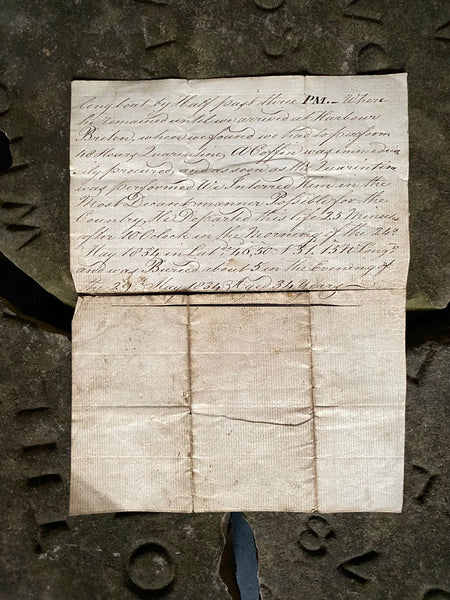 long boat by Half past three PM. – Where
he remained untill we arrived at Harbour
Briton, where we found we had to perform
48 Hours Quarantine, A Coffin was immedia
ly procured, and as soon as the Quarintin
was performed We Interred Him in the
Most Decant manner Posible for the
Country, He Departed this life 25 Minuts
after 10 O'Clock in the Morning of the 24th
May 1834 in Latde 46,50 - 51.15 W Longde
and was Buried about 5 in the Evening of
the 29th May 1834 Aged 34 Years